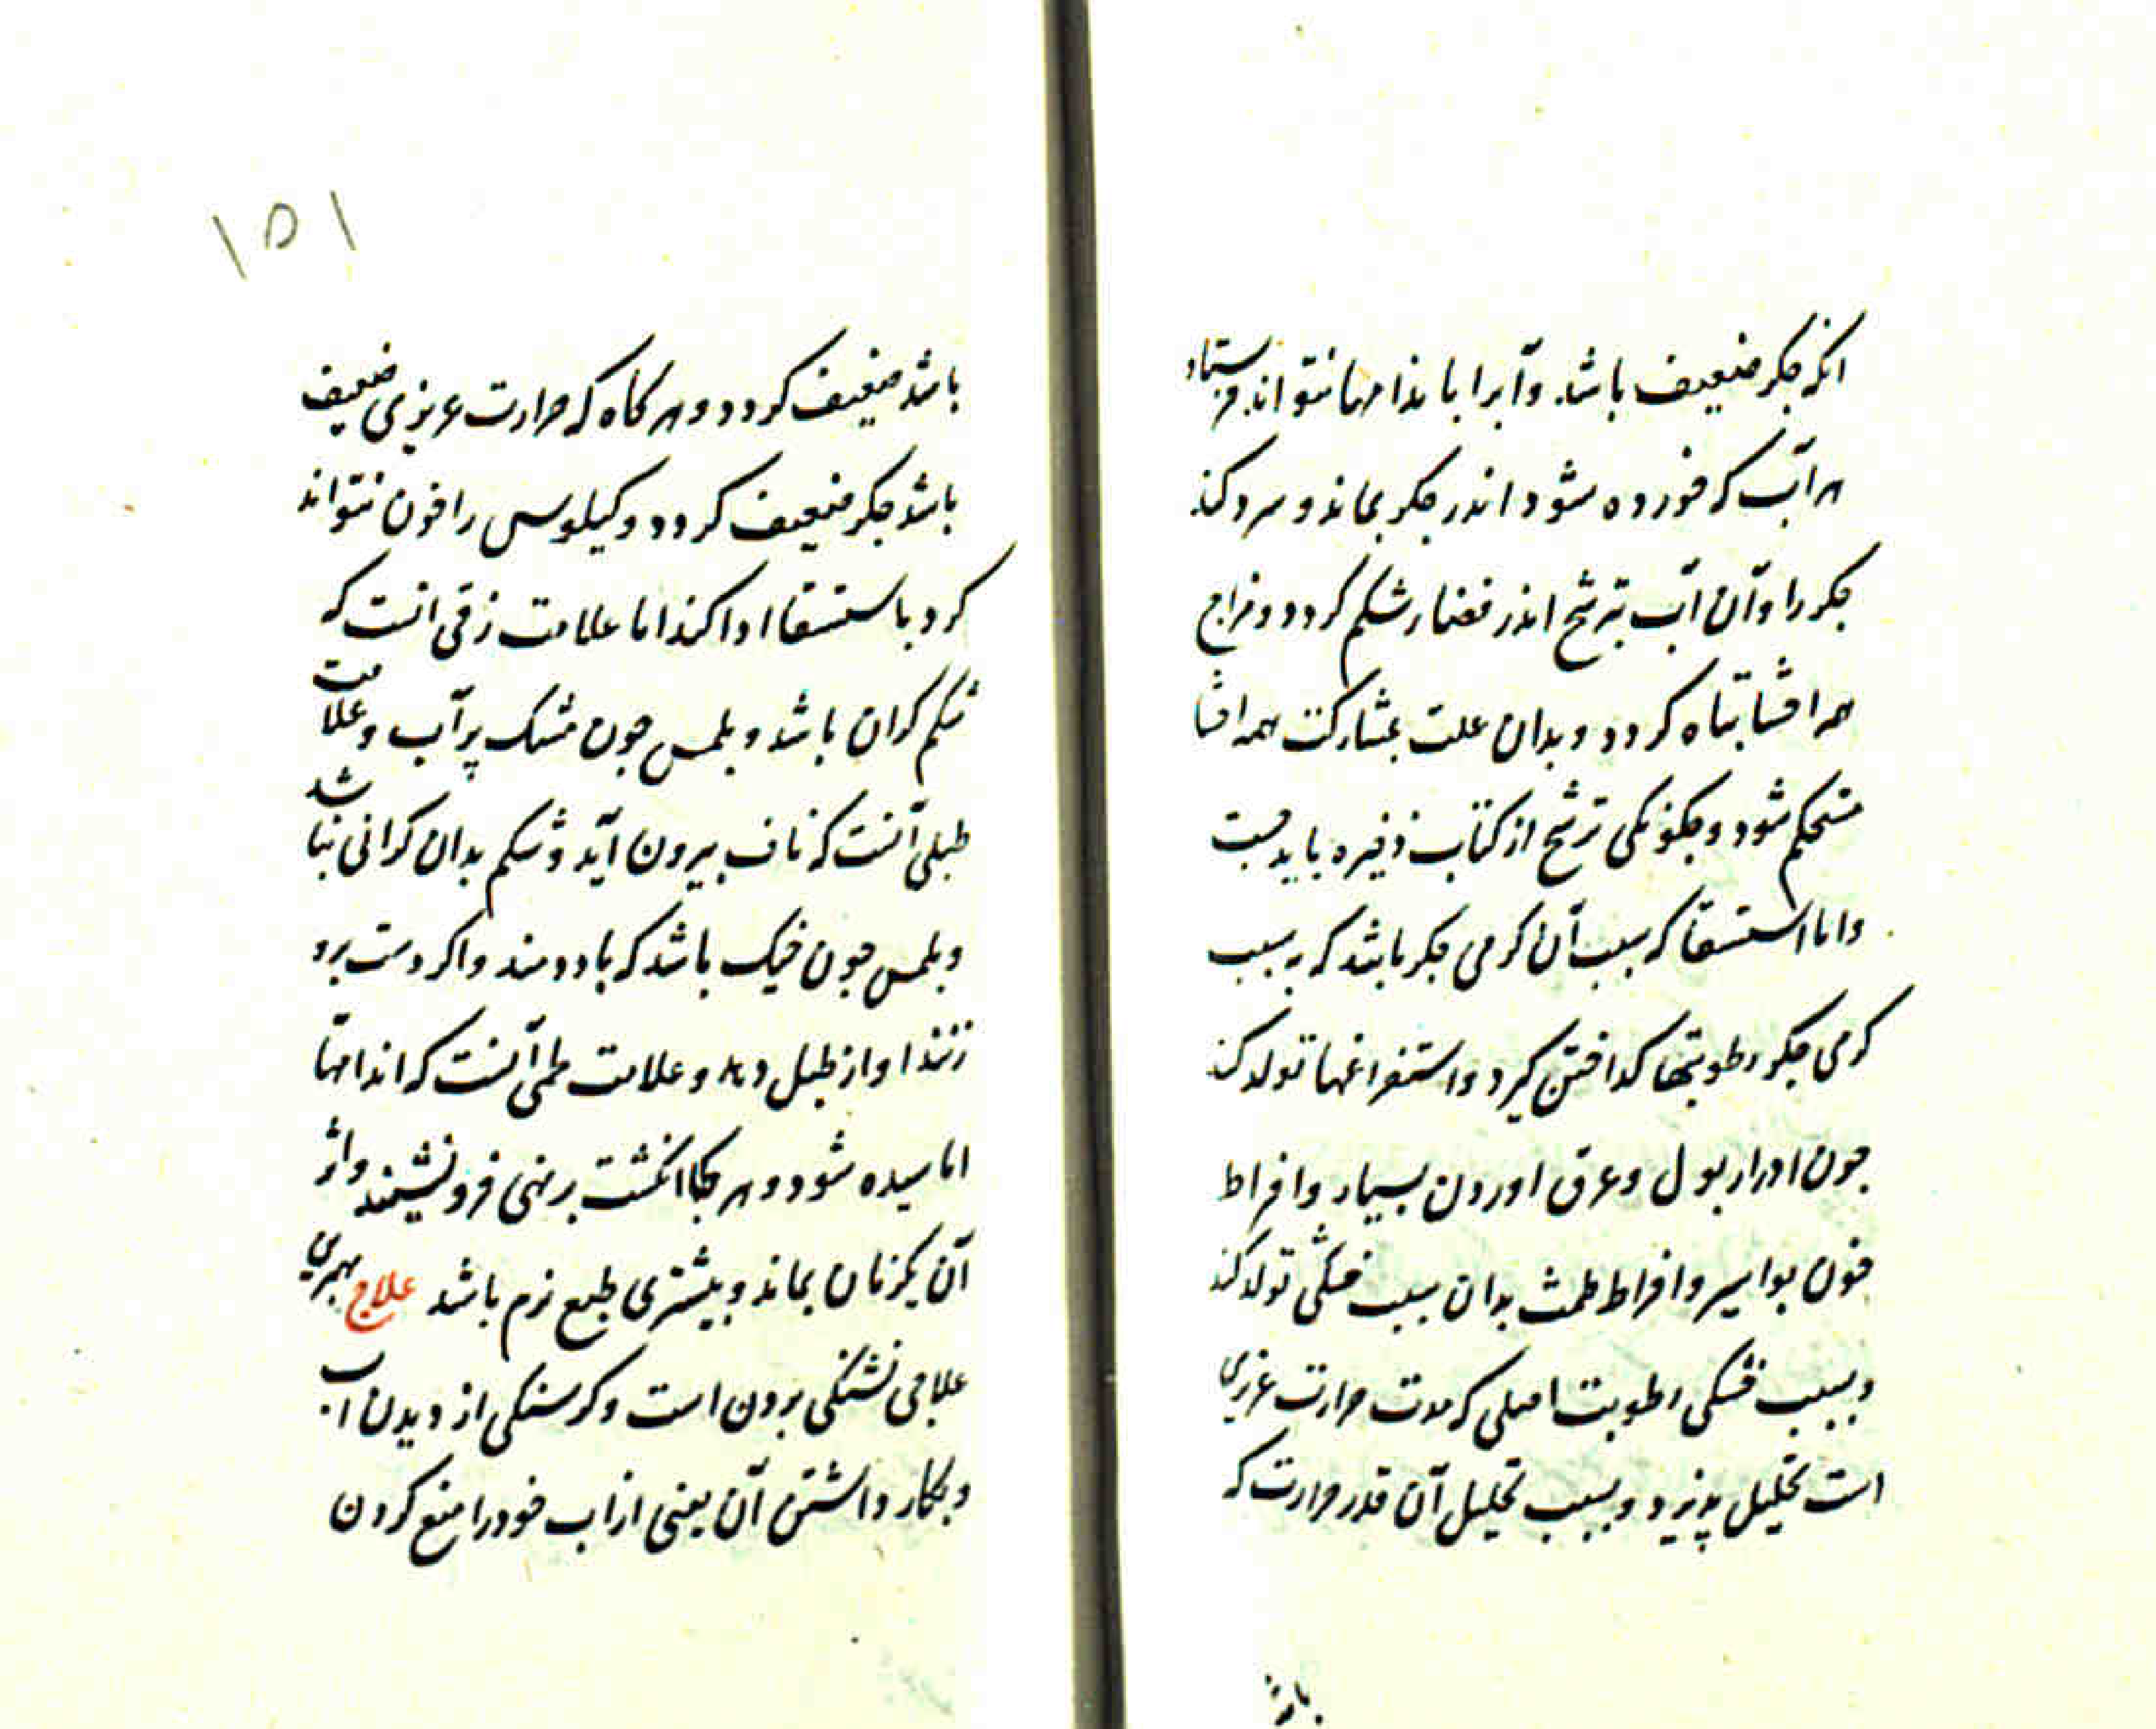 انکه جکر ضعیف باشد و آبرا باندامها نتواند فرستاد
هر آب که خورده شود اندر جکر بماند و سرد کند
جکر را و آن آب بترشح اندر فضاء شکم کردد و مزاج
همه احشا تباه کردد و بدان علت بمشارکت همه احشا
مستحکم شود و جکونکی ترشح از کتاب ذخیره باید جست
و اما استسقا که سبب آن کرمی جکر باشد که به سبب
کرمی جکر رطوبتها کداختن کیرد و استفراغها تولد کند
جون ادرار بول و عرق اوردن بسیار و افراط
خون بواسیر و افراط طمث بدان سبب خشکی تولد کند
و بسبب خشکی رطوبت اصلی که مدت حرارت غریزی
است تحلیل پذیرد و بسبب تحلیل آن قدر حرارت که
باشد
۱۵۱
باشد ضعیف کردد و هر کاه که حرارت غریزی ضعیف
باشد جکر ضعیف کردد و کیلوس را خون نتواند
کرد باستسقا ادا کند اما علامت زقی انست که
شکم کران باشد و بلمس جون مشک پر آب و علامت
طبلی آنست که ناف بیرون آید و شکم بدان کرانی نباشد
و بلمس جون خیک باشد که باد دمند و اکر دست برو
زنند اواز طبل دهد و علامت لحمی آنست که اندامها
اماسیده شود و هر کجا انکشت برنهی فرو نشیند و اثر
آن یکزمان بماند و بیشتری طبع نرم باشد علاج بهتری
علاجی تشنکی بردن است و کرسنکی از دیدن اب
و بکار داشتن آن یعنی از اب خود را منع کردن